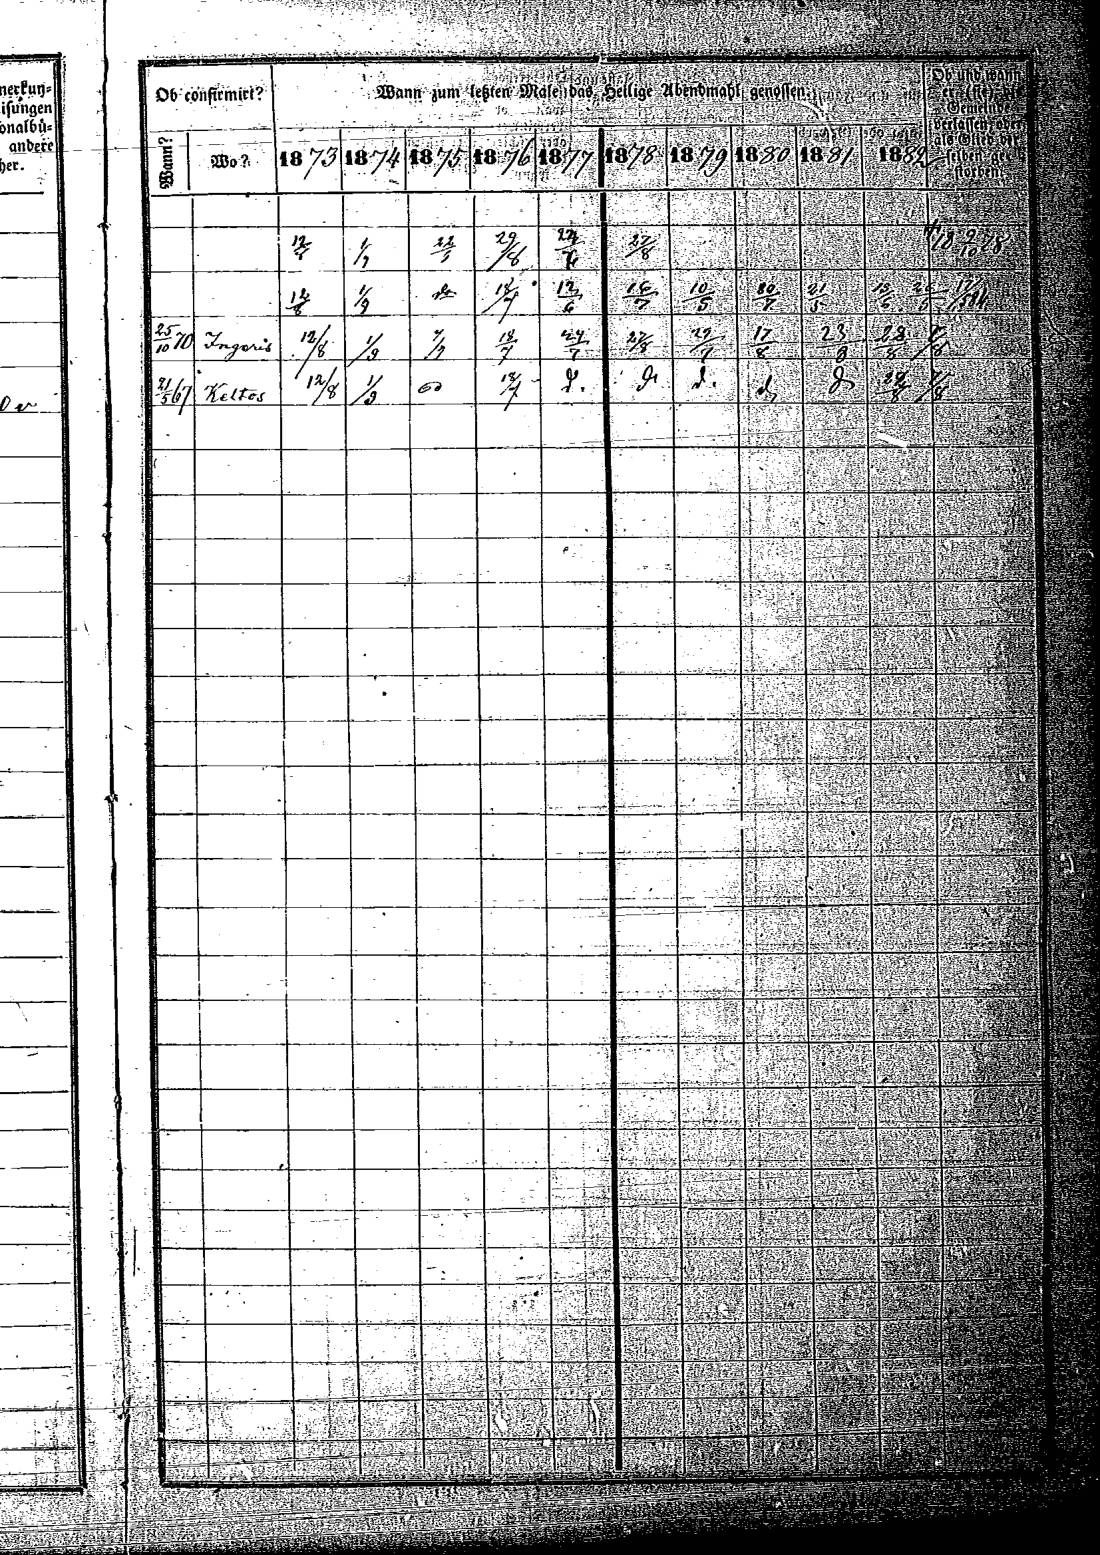 nerkun-
isungen
onalbü-
andere
her.
Ob confirmirt?
Wann zum letzten Male das Heilige Abendmahl genossen.
Ob und wann
er (sie) die
Gemeinde
verlassen oder
als Glied der-
selben ge-
storben?
Wann? Wo? 1873 1874 1875 1876 1877 1878 1879 1880 1881 1882
12/8 1/9 22/5 29/8 27/8
12/8 1/9 18/7 12/6 16/7 10/5 21/5
25/10 70 Ingeris 12/8 1/9 7/9 18/7 24/7 27/8 29/7 17/8 23/8 28/8
21/5 67 Keltos 12/8 1/9 18/7 d. d. d. d. d. 28/8